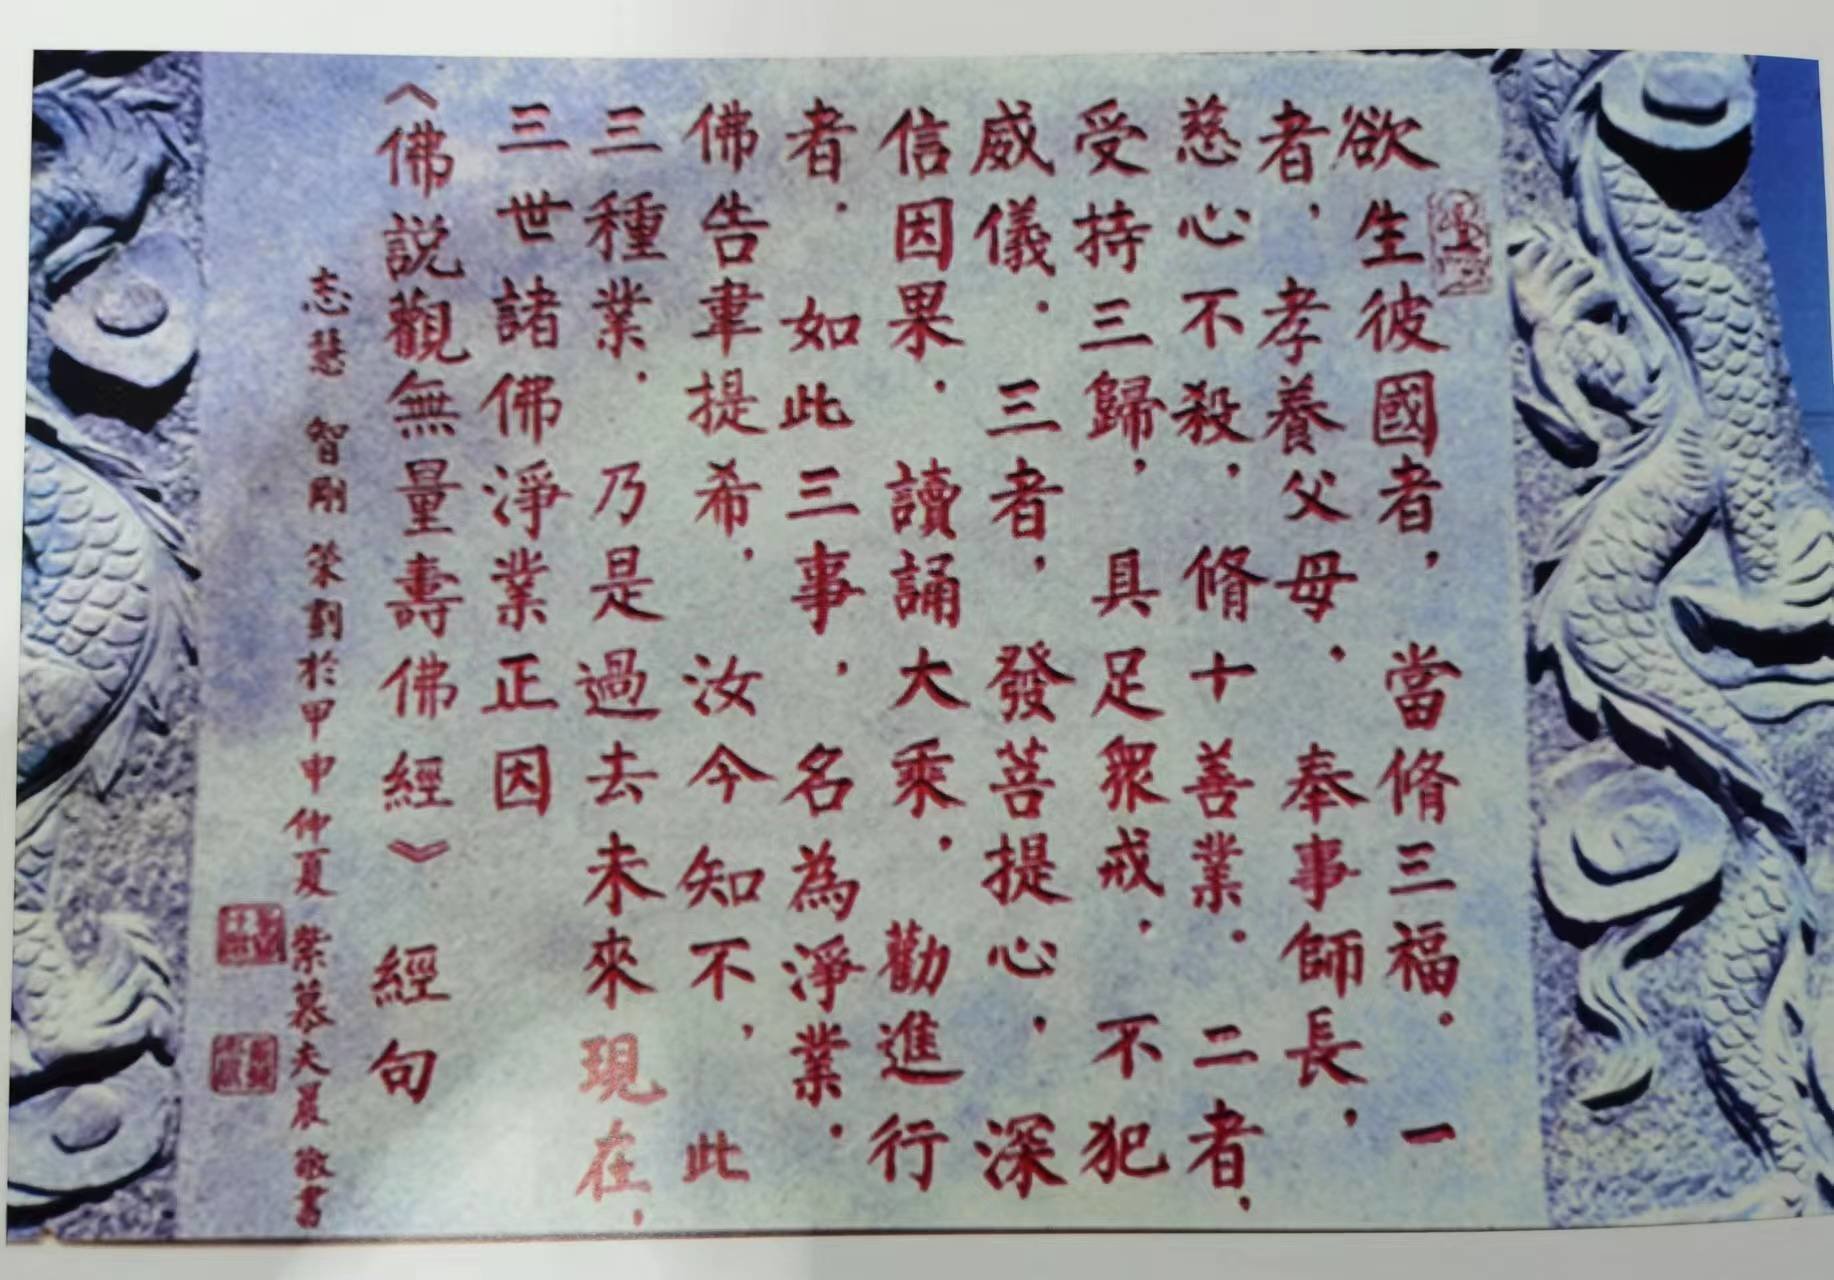 欲生彼國者，當脩三福。一
者，孝養父母，奉事師長，
慈心不殺，脩十善業。二者，
受持三歸，具足眾戒，不犯
威儀。三者，發菩提心，深
信因果，讀誦大乘，勸進行
者。如此三事，名為淨業。
佛告韋提希，汝今知不，此
三種業，乃是過去未來現在，
三世諸佛淨業正因
《佛説觀無量壽佛經》經句
志慧 智剛 策劃於甲申仲夏 紫慕夫晨敬書